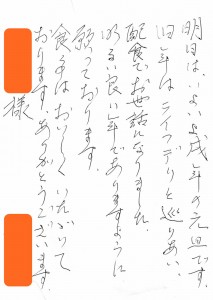 明日は、いよいよ戌年の元旦です。
旧年はライフデリと巡りあい、
配食でお世話になりました。
明るい良い年でありますように
願っております。
食事はおいしくいただいて
おります。ありがとうございます。
様